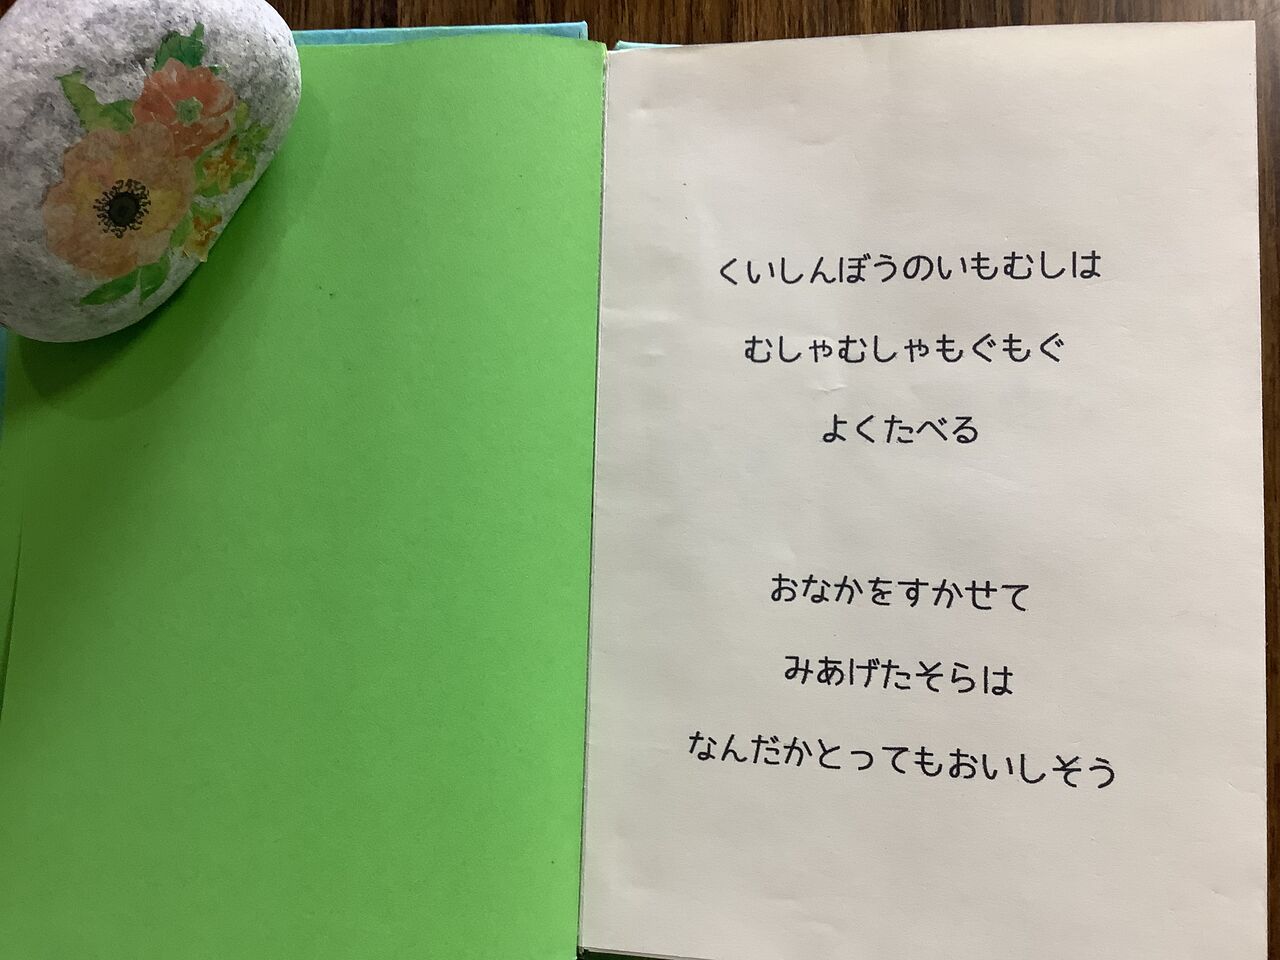 くいしんぼうのいもむしは
むしゃむしゃもぐもぐ
よくたべる
おなかをすかせて
みあげたそらは
なんだかとってもおいしそう